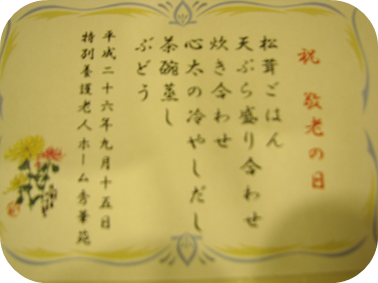 祝 敬老の日
松茸ごはん
天ぷら盛り合わせ
炊き合わせ
心太の冷やしだし
茶碗蒸し
ぶどう
平成二十六年九月十五日
特別養護老人ホーム秀華苑